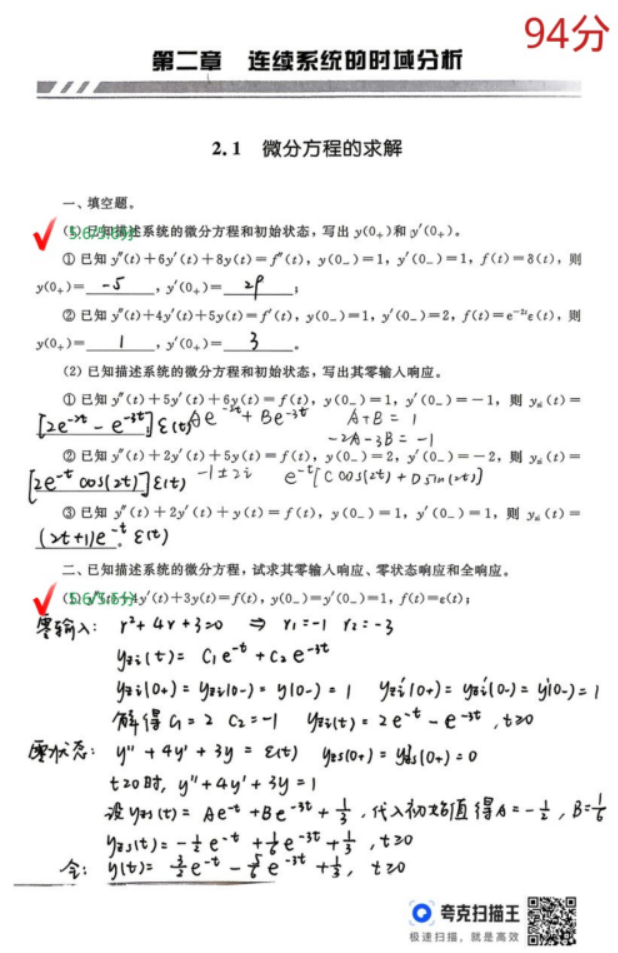 94分
第二章 连续系统的时域分析
2.1 微分方程的求解
一、填空题。
(1)已知描述系统的微分方程和初始状态，写出 y(0₊)和 y′(0₊)。
① 已知 y″(t)+6y′(t)+8y(t)=f″(t)，y(0₋)=1，y′(0₋)=1，f(t)=δ(t)，则
y(0₊)= -5 ，y′(0₊)= 29 ；
② 已知 y″(t)+4y′(t)+5y(t)=f′(t)，y(0₋)=1，y′(0₋)=2，f(t)=e⁻²ᵗε(t)，则
y(0₊)= 1 ，y′(0₊)= 3 。
(2) 已知描述系统的微分方程和初始状态，写出其零输入响应。
① 已知 y″(t)+5y′(t)+6y(t)=f(t)，y(0₋)=1，y′(0₋)=-1，则 yzi(t)=
[2e⁻²ᵗ - e⁻³ᵗ]ε(t) Ae⁻²ᵗ + Be⁻³ᵗ A+B=1
-2A-3B=-1
② 已知 y″(t)+2y′(t)+5y(t)=f(t)，y(0₋)=2，y′(0₋)=-2，则 yzi(t)=
[2e⁻ᵗ cos(2t)]ε(t) -1±2i e⁻ᵗ[C cos(2t) + D sin(2t)]
③ 已知 y″(t)+2y′(t)+y(t)=f(t)，y(0₋)=1，y′(0₋)=1，则 yzi(t)=
(2t+1)e⁻ᵗ ε(t) 。
二、已知描述系统的微分方程，试求其零输入响应、零状态响应和全响应。
(1) y″(t)+4y′(t)+3y(t)=f(t)，y(0₋)=y′(0₋)=1，f(t)=ε(t)；
零输入: r²+4r+3=0 ⇒ r₁=-1 r₂=-3
yzi(t)= C₁e⁻ᵗ + C₂e⁻³ᵗ
yzi(0+)= yzi(0-)= y(0-)=1 yzi′(0+)= yzi′(0-)= y′(0-)=1
解得 C₁=2 C₂=-1 yzi(t)= 2e⁻ᵗ - e⁻³ᵗ , t≥0
零状态: y″+4y′+3y = ε(t) yzs(0+)= y′zs(0+)=0
t≥0时, y″+4y′+3y=1
设 yzs(t)= Ae⁻ᵗ +Be⁻³ᵗ + 1/3 , 代入初始值得 A=-1/2 , B=1/6
yzs(t)= -1/2 e⁻ᵗ + 1/6 e⁻³ᵗ + 1/3 , t≥0
全: y(t)= 3/2 e⁻ᵗ - 5/6 e⁻³ᵗ + 1/3 , t≥0
夸克扫描王
极速扫描，就是高效